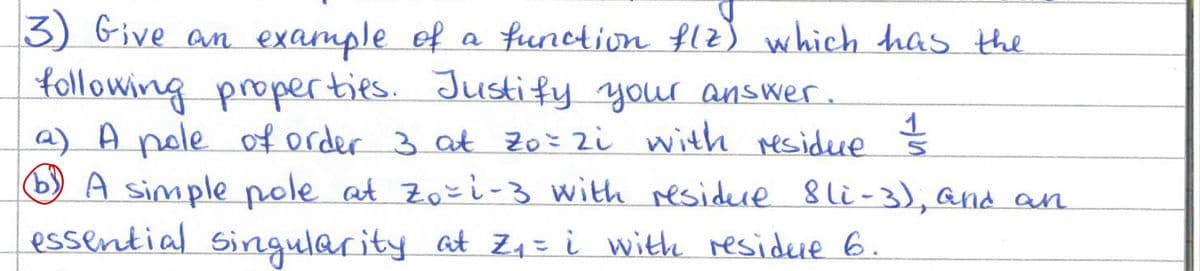 3) Give an example of a function f(z) which has the
following properties. Justify your answer.
a) A pole of order 3 at z₀=2i with residue 1/5
b) A simple pole at z₀=i-3 with residue 8(i-3), and an
essential singularity at z₁=i with residue 6.